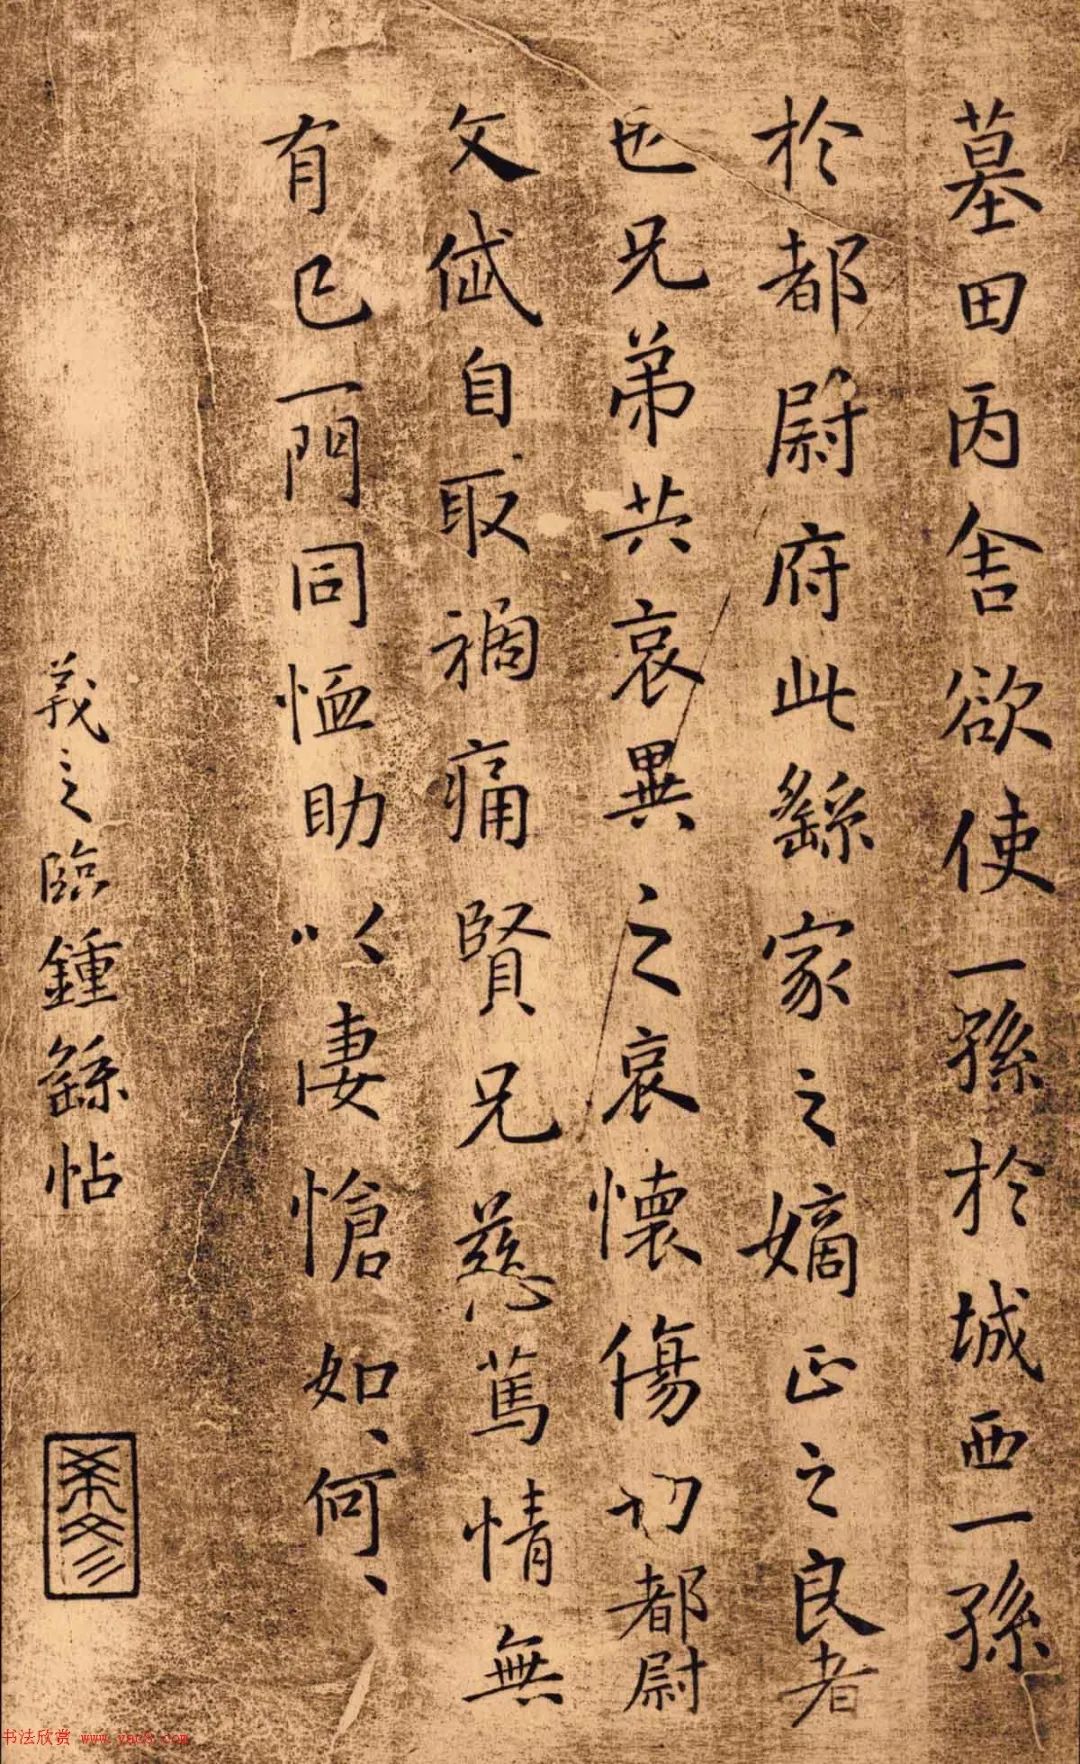 墓田丙舍欲使一孫於城西一孫
於都尉府此繇家之嫡正之良者
也兄弟共哀異之哀懷傷切都尉
文岱自取禍痛賢兄慈篤情無
有已一門同恤助以悽愴如、何、
羲之臨鍾繇帖
书法欣赏 www.yac8.com